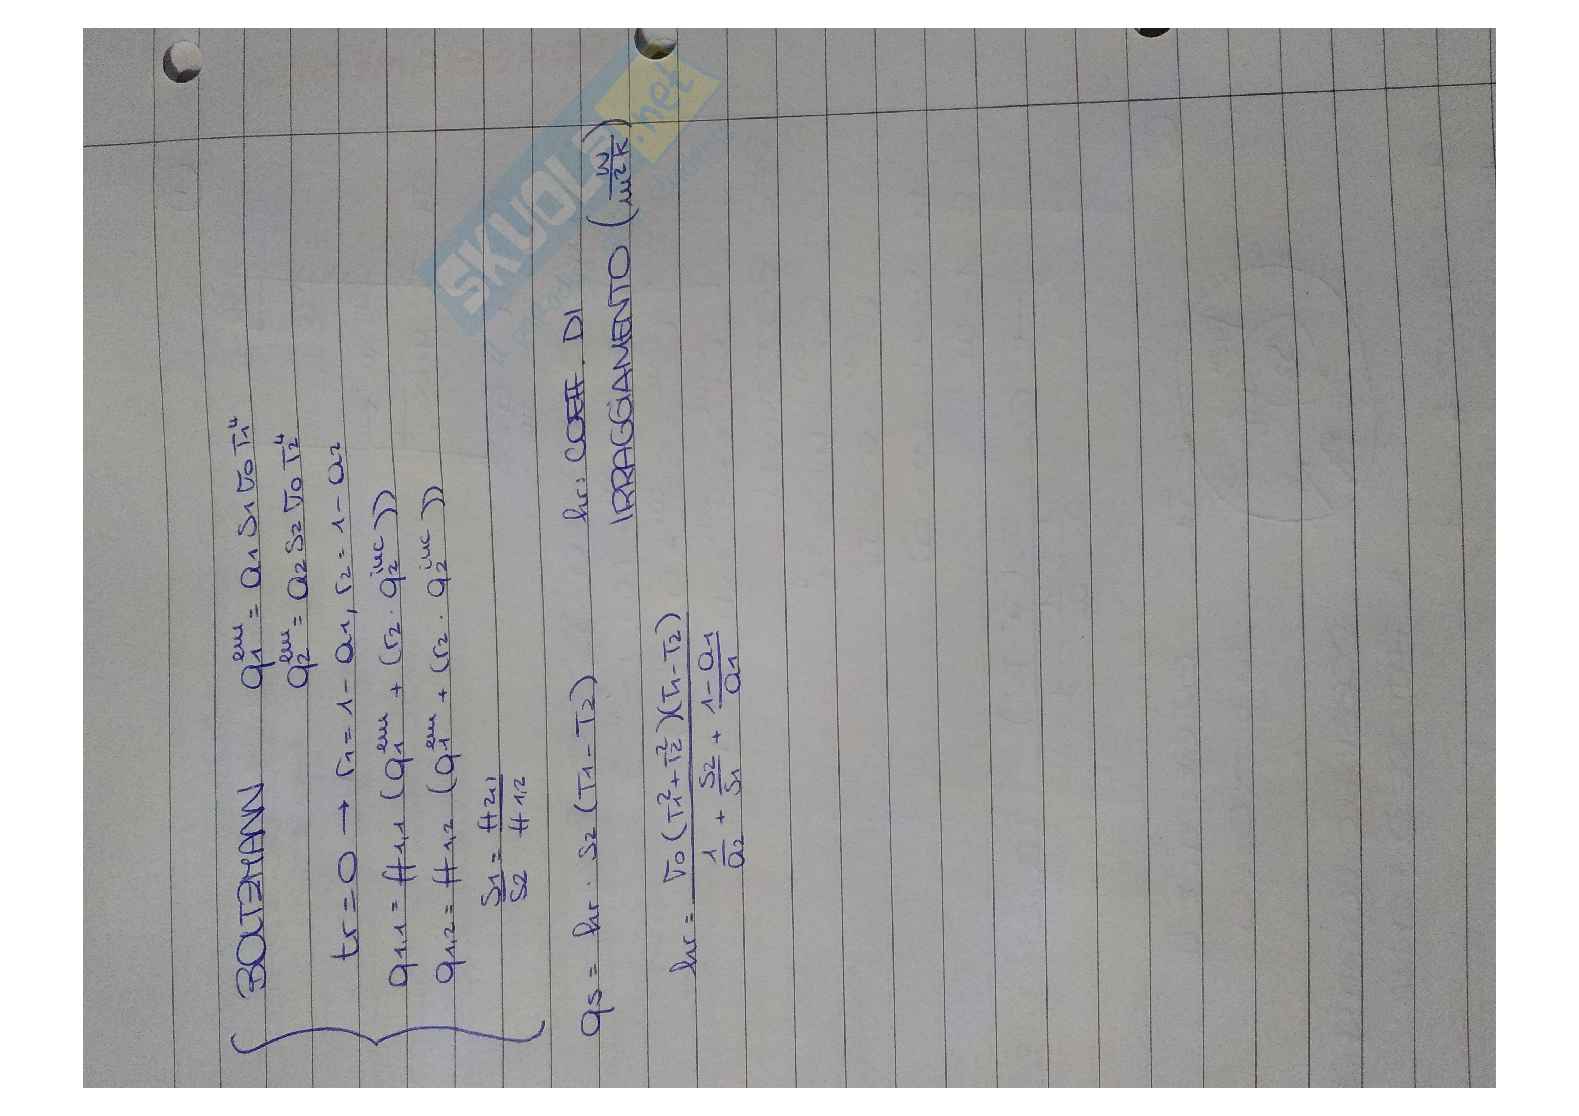 BOLTZMANN q₁ᵉᵐ = a₁ S₁ σ₀ T₁⁴
q₂ᵉᵐ = a₂ S₂ σ₀ T₂⁴
tr = 0 → r₁ = 1 - a₁, r₂ = 1 - a₂
q₁,₁ = ff₁,₁ (q₁ᵉᵐ + (r₂ · q₂ⁱⁿᶜ))
q₁,₂ = ff₁,₂ (q₁ᵉᵐ + (r₂ · q₂ⁱⁿᶜ))
S₁/S₂ = ff₂,₁/ff₁,₂
qs = hr · S₂ (T₁ - T₂) hr: COEFF. DI
IRRAGGIAMENTO (W/m²K)
hr = σ₀ (T₁² + T₂²)(T₁ - T₂)
1/a₂ + S₂/S₁ + 1 - a₁/a₁
SKUOLA.net